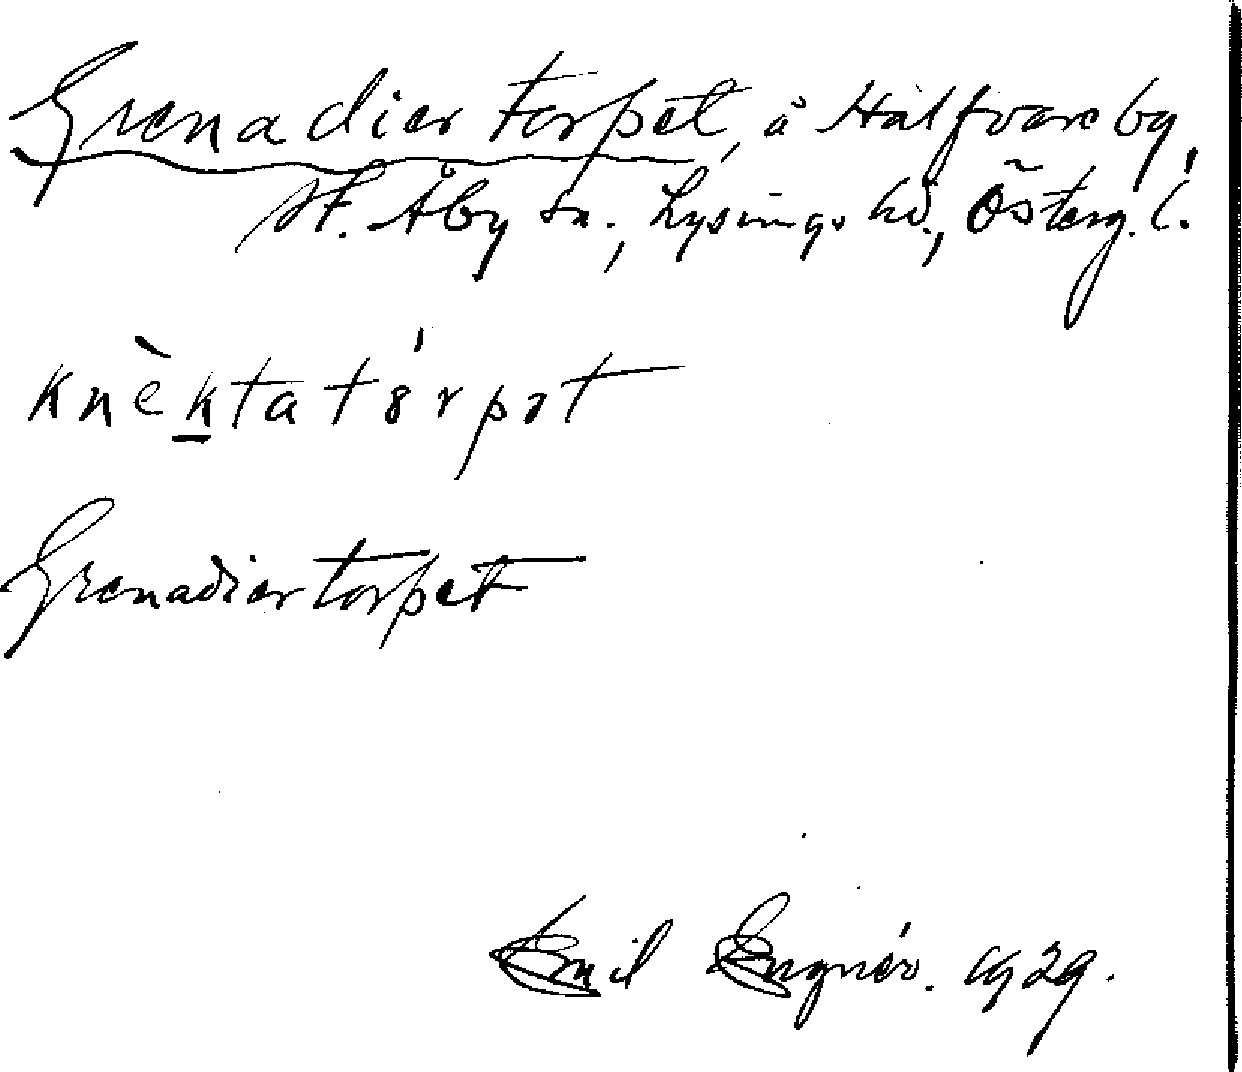 Grenadiertorpet, å Halfvareby,
St. Åby sn., Lysings hd., Österg. l.
knèktatórpət
Grenadiertorpet
Emil Engnér. 1929.